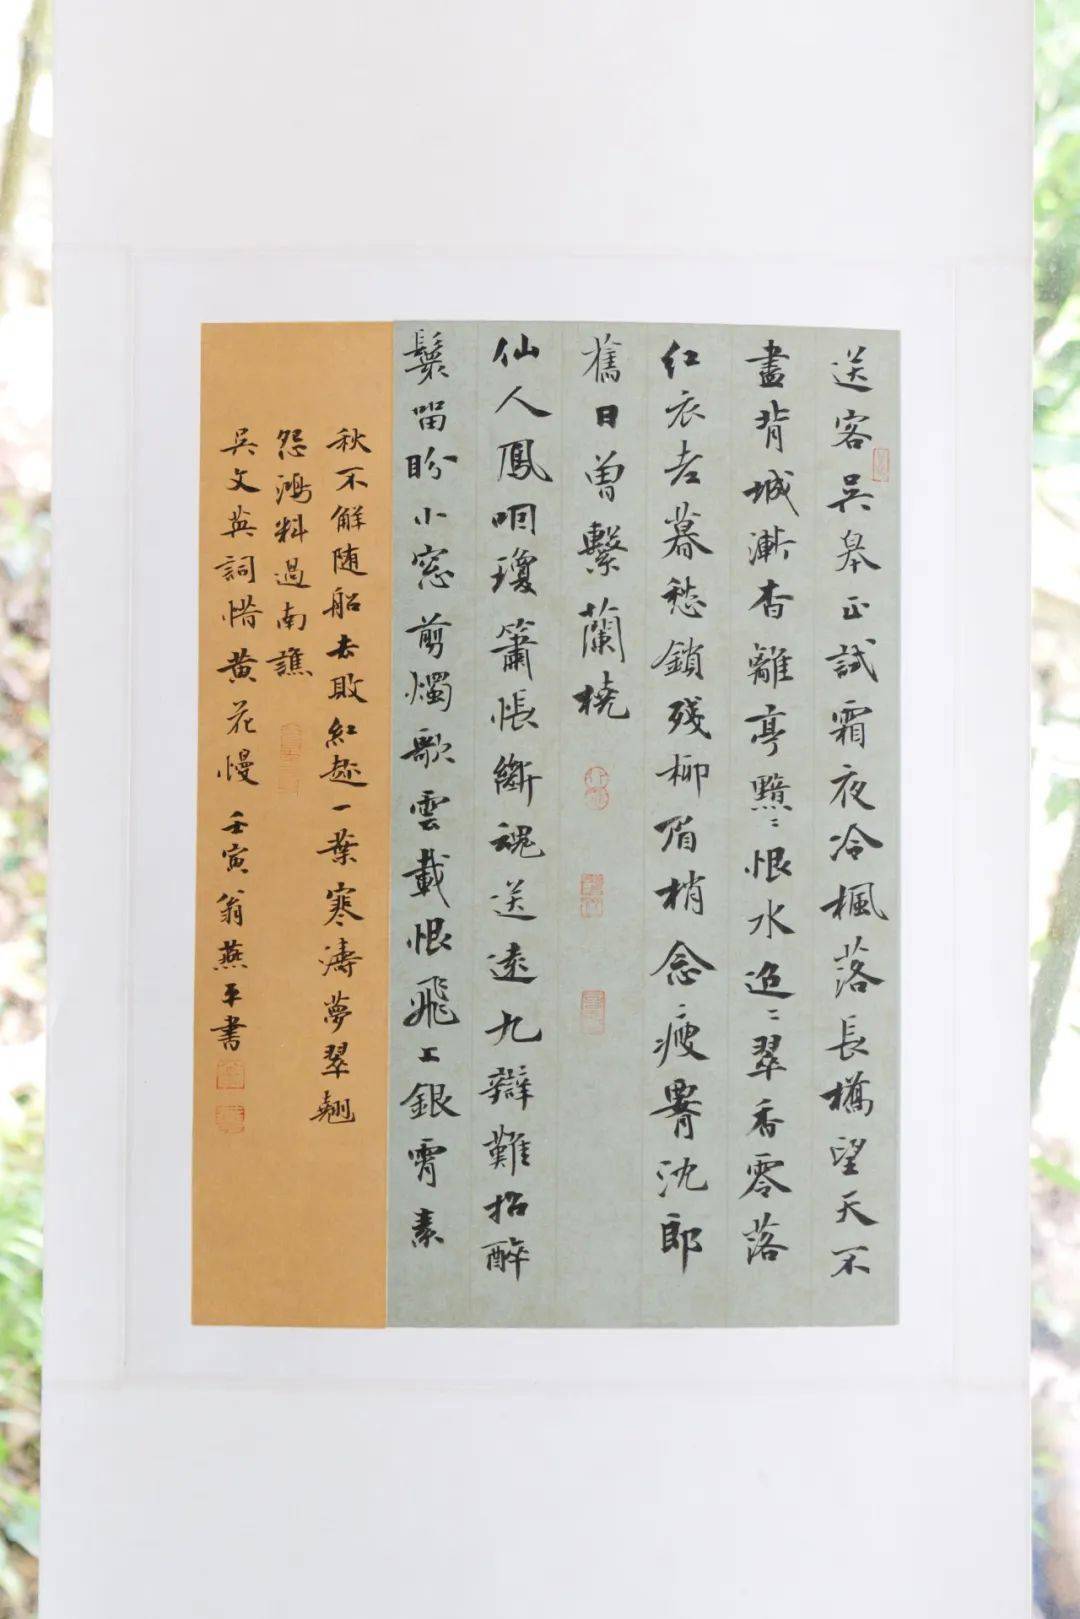 送客吳皋正試霜夜冷楓落長橋望天不
盡背城漸杳離亭黯〻恨水迢〻翠香零落
紅衣老暮愁鎖殘柳眉梢念瘦腰沈郎
舊日曾繫蘭橈
仙人鳳咽瓊簫悵斷魂送遠九辯難招醉
鬟留盼小窓剪燭歌雲載恨飛上銀霄素
秋不解随船去敗紅趁一葉寒濤夢翠翹
怨鴻料過南譙
吳文英詞惜黃花慢 壬寅翁燕平書